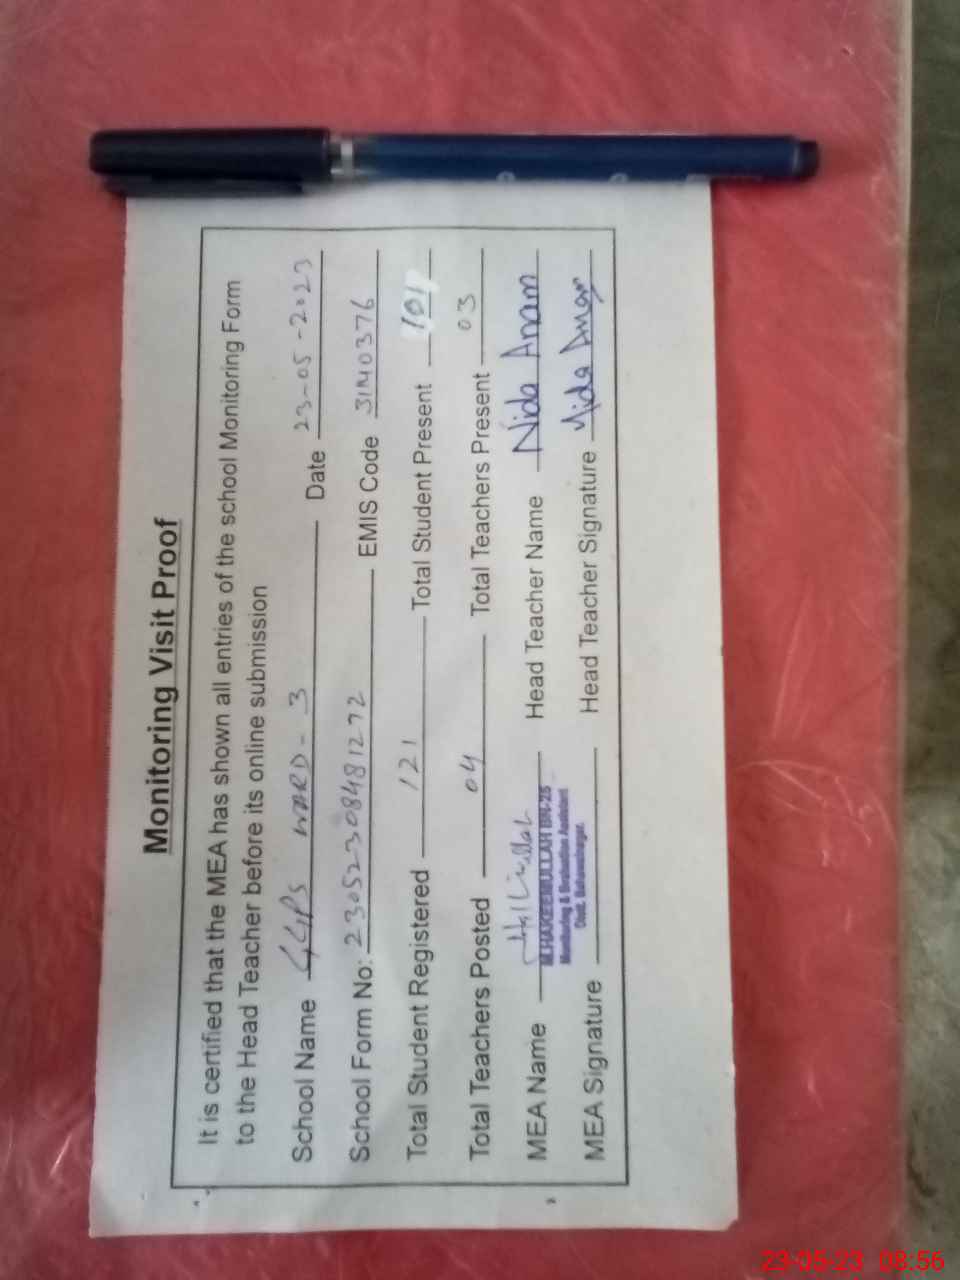 Monitoring Visit Proof
It is certified that the MEA has shown all entries of the school Monitoring Form
to the Head Teacher before its online submission
School Name GGPS WARD-3 Date 23-05-2023
School Form No: 23052308481272 EMIS Code 31140376
Total Student Registered 121 Total Student Present 101
Total Teachers Posted 04 Total Teachers Present 03
MEA Name Head Teacher Name Nida Anam
M.HAKEEMULLAH BN-25
Monitoring & Evaluation Assistant
Distt. Bahawalnagar.
MEA Signature Head Teacher Signature Nida Anam
23-05-23 08:56